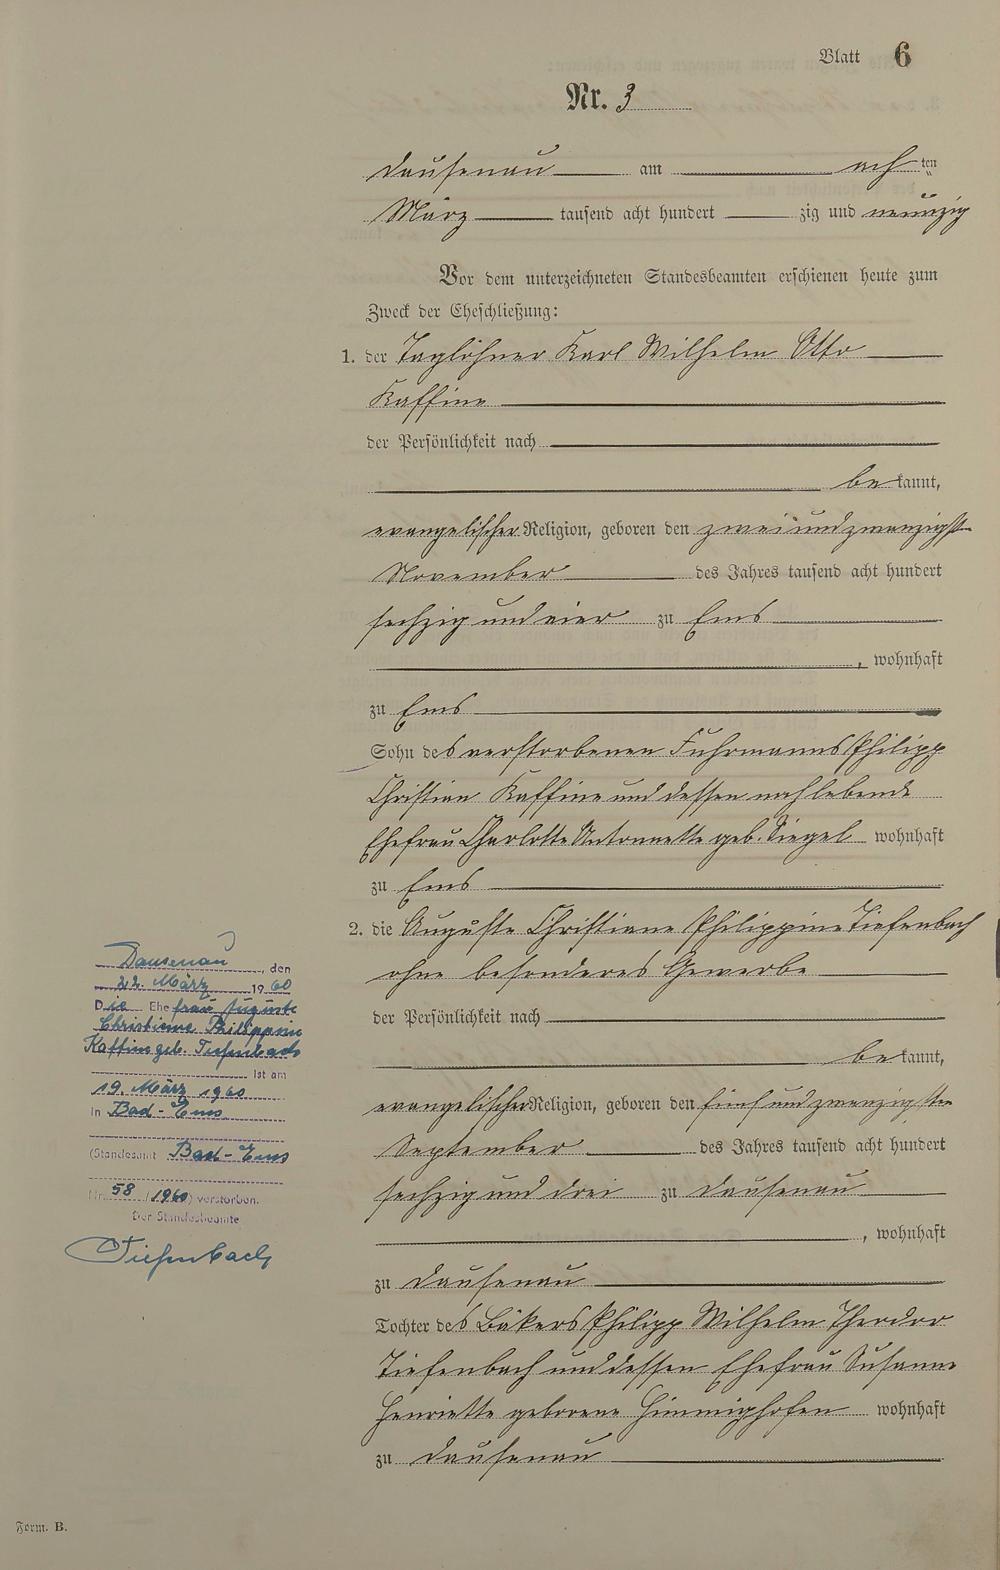 Blatt 6
Nr. 3
Dausenau am ach ten
März tausend acht hundert zig und neunzig
Vor dem unterzeichneten Standesbeamten erschienen heute zum
Zweck der Eheschließung:
1. der Taglöhner Karl Wilhelm Otto
Kaffine
der Persönlichkeit nach
be kannt,
evangelischer Religion, geboren den zwei und zwanzigsten
November des Jahres tausend acht hundert
sechzig und vier zu Ems
, wohnhaft
zu Ems
Sohn des verstorbenen Fuhrmanns Philipp
Christian Kaffine und dessen nachlebende
Ehefrau Charlotte Antonnette geb. Siegel wohnhaft
zu Ems
2. die Auguste Christiane Philippine Tiefenbach
ohne besonderes Gewerbe
der Persönlichkeit nach
be kannt,
evangelischer Religion, geboren den fünf und zwanzigsten
September des Jahres tausend acht hundert
sechzig und drei zu Dausenau
, wohnhaft
zu Dausenau
Tochter des Bäkers Philipp Wilhelm Theodor
Tiefenbach und dessen Ehefrau Susanne
Henriette geborene Himmighofen wohnhaft
zu Dausenau
Dausenau, den
22. März 1960
Die Ehefrau Auguste
Christiane Philippine
Kaffine geb. Tiefenbach
ist am
19. März 1960
in Bad-Ems
(Standesamt Bad-Ems
Nr. 58 / 1960) verstorben.
Der Standesbeamte
Tiefenbach
Form. B.